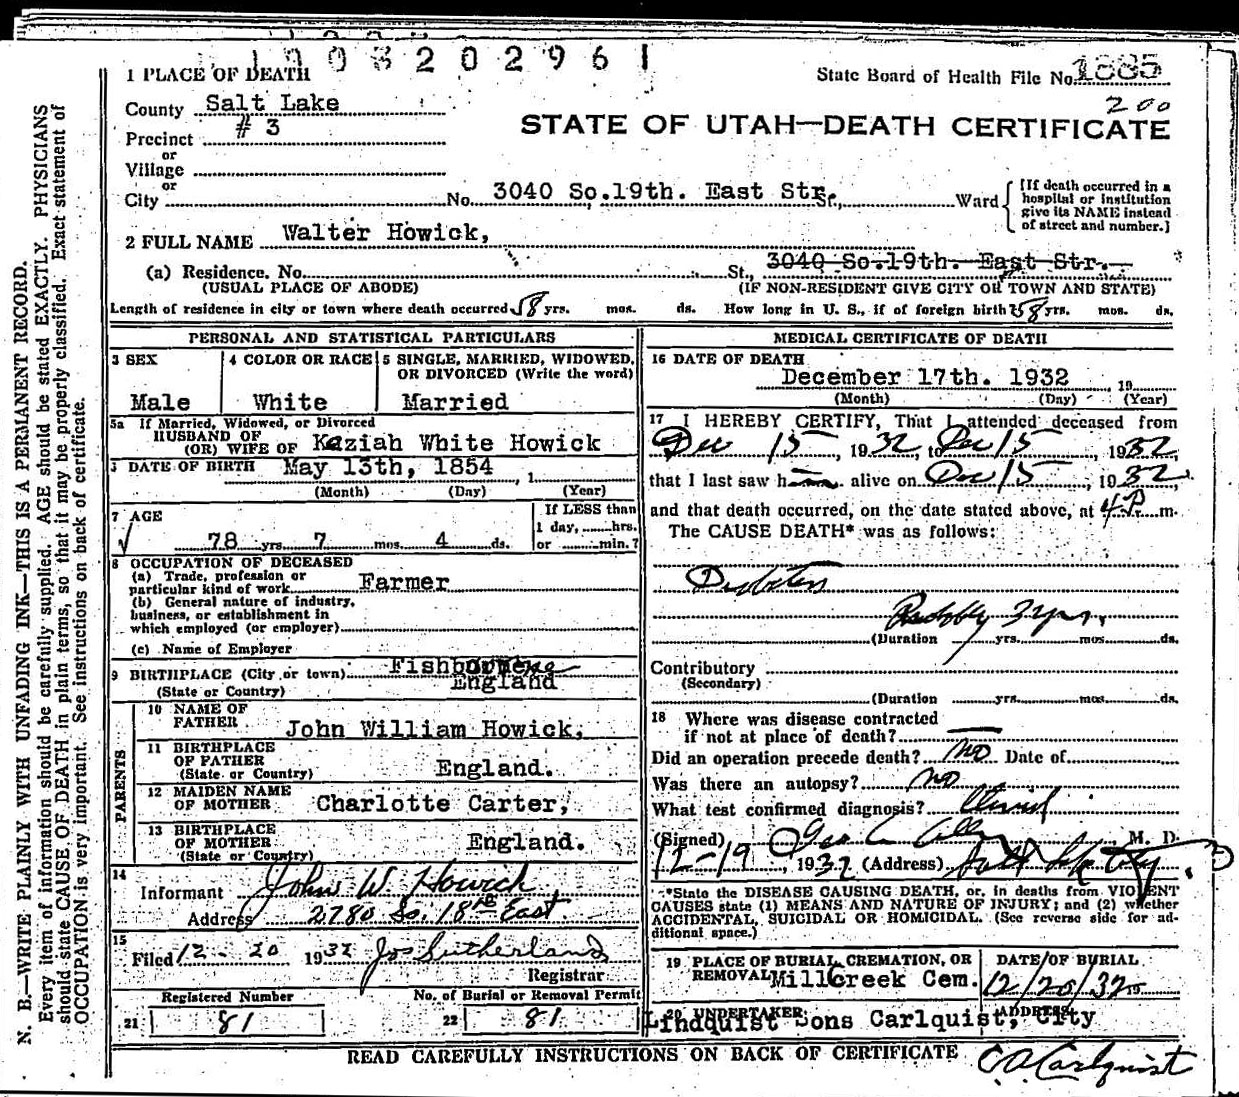 1003202961
1 PLACE OF DEATH
State Board of Health File No. 1885
200
County Salt Lake
STATE OF UTAH—DEATH CERTIFICATE
Precinct # 3
or
Village
or
City No. 3040 So.19th. East Str. St., Ward
[If death occurred in a hospital or institution give its NAME instead of street and number.]
2 FULL NAME Walter Howick,
(a) Residence. No. St., 3040 So.19th. East Str.
(USUAL PLACE OF ABODE) (IF NON-RESIDENT GIVE CITY OR TOWN AND STATE)
Length of residence in city or town where death occurred 58 yrs. mos. ds. How long in U. S., if of foreign birth? 58 yrs. mos. ds.
PERSONAL AND STATISTICAL PARTICULARS
3 SEX
Male
4 COLOR OR RACE
White
5 SINGLE, MARRIED, WIDOWED, OR DIVORCED (Write the word)
Married
5a If Married, Widowed, or Divorced
HUSBAND OF
(OR) WIFE OF Keziah White Howick
DATE OF BIRTH May 13th, 1854, 1
(Month) (Day) (Year)
7 AGE
78 yrs. 7 mos. 4 ds.
If LESS than
1 day, hrs.
or min.?
8 OCCUPATION OF DECEASED
(a) Trade, profession or
particular kind of work Farmer
(b) General nature of industry,
business, or establishment in
which employed (or employer)
(c) Name of Employer
9 BIRTHPLACE (City or town)
(State or Country) England
PARENTS
10 NAME OF
FATHER John William Howick,
11 BIRTHPLACE
OF FATHER England.
(State or Country)
12 MAIDEN NAME
OF MOTHER Charlotte Carter,
13 BIRTHPLACE
OF MOTHER England.
(State or Country)
14
Informant John W. Howick,
Address 2780 So. 18th East.
15
Filed 12-20 1932 Jos Sutherland
Registrar
Registered Number
21 81
No. of Burial or Removal Permit
22 81
MEDICAL CERTIFICATE OF DEATH
16 DATE OF DEATH
December 17th. 1932, 19
(Month) (Day) (Year)
17 I HEREBY CERTIFY, That I attended deceased from
Dec 15, 1932, to Dec 15, 1932,
that I last saw him alive on Dec 15, 1932,
and that death occurred, on the date stated above, at 4 P. m.
The CAUSE DEATH* was as follows:
Diabetes
Probably 3 yrs.
(Duration yrs. mos. ds.
Contributory
(Secondary)
(Duration yrs. mos. ds.
18 Where was disease contracted
if not at place of death?
Did an operation precede death? No Date of
Was there an autopsy? No
What test confirmed diagnosis?
(Signed) Geo M. D.
12-19, 1932 (Address) Salt Lake City.
*State the DISEASE CAUSING DEATH, or, in deaths from VIOLENT
CAUSES state (1) MEANS AND NATURE OF INJURY; and (2) whether
ACCIDENTAL, SUICIDAL OR HOMICIDAL. (See reverse side for ad-
ditional space.)
19 PLACE OF BURIAL, CREMATION, OR
REMOVAL Mill Creek Cem.
DATE OF BURIAL
12/20/32
20 UNDERTAKER ADDRESS
Lindquist Sons Carlquist, City
READ CAREFULLY INSTRUCTIONS ON BACK OF CERTIFICATE
C A Carlquist
N. B.—WRITE PLAINLY WITH UNFADING INK—THIS IS A PERMANENT RECORD.
Every item of information should be carefully supplied. AGE should be stated EXACTLY. PHYSICIANS
should state CAUSE OF DEATH in plain terms, so that it may be properly classified. Exact statement of
OCCUPATION is very important. See instructions on back of certificate.